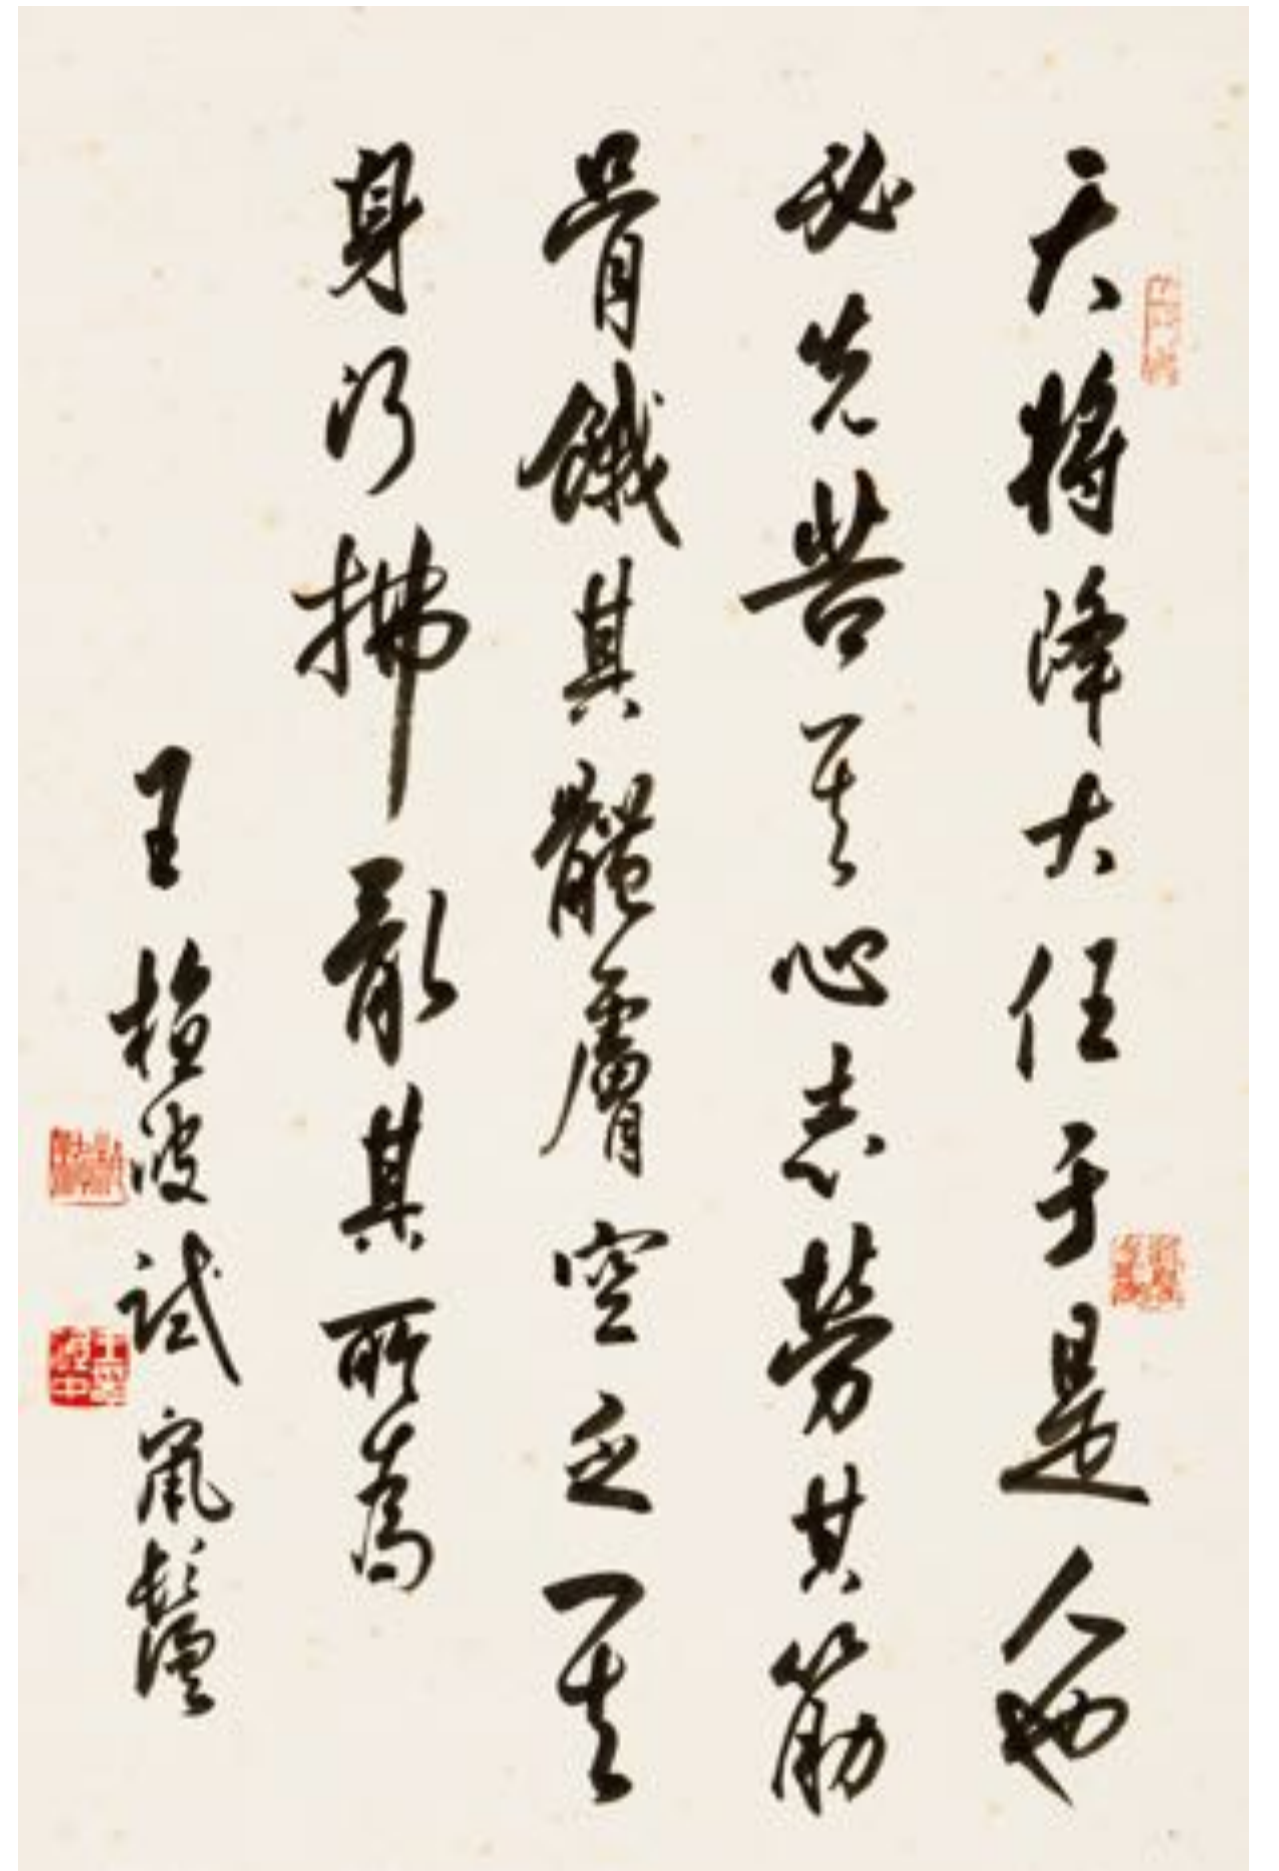 天将降大任于是人也
必先苦其心志劳其筋
骨餓其體膚空乏其
身行拂亂其所為
王植波試鼠鬚